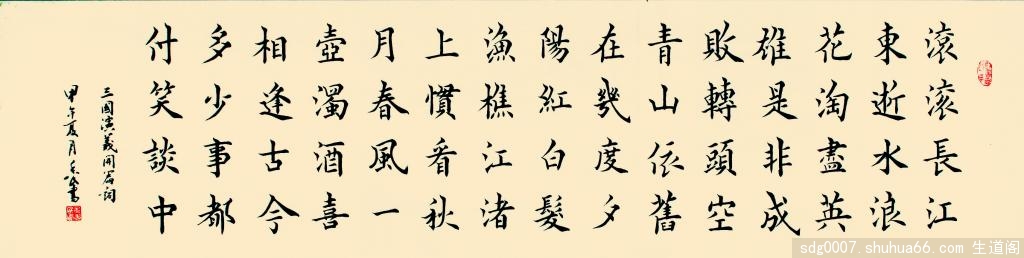 滾滾長江
東逝水浪
花淘盡英
雄是非成
敗轉頭空
青山依舊
在幾度夕
陽紅白髮
漁樵江渚
上慣看秋
月春風一
壺濁酒喜
相逢古今
多少事都
付笑談中
三國演義開篇詞
甲午夏月書
sdg0007.shuhua66.com 生道阁